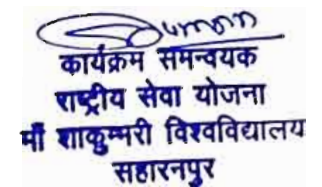 कार्यक्रम समन्वयक
राष्ट्रीय सेवा योजना
माँ शाकुम्भरी विश्वविद्यालय
सहारनपुर